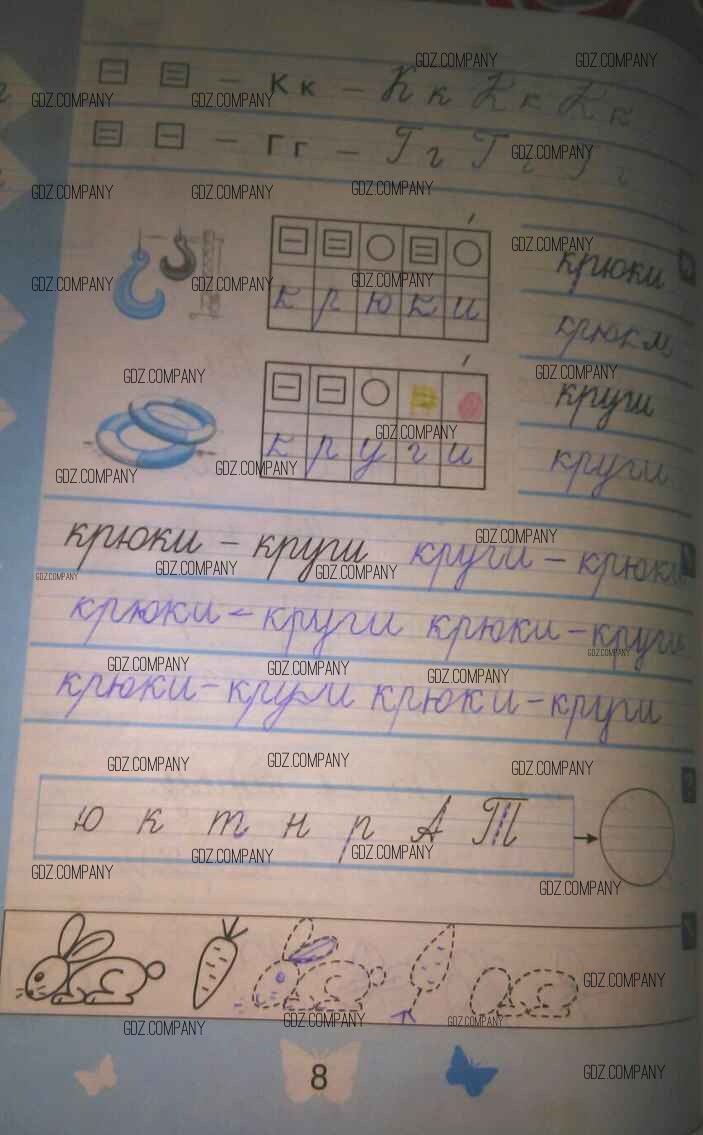 – К к – К к К к К к
– Г г – Г г Г г Г г
к р ю к и
крюки
крюки
к р у г и
круги
круги
крюки – круги круги – крюки
крюки – круги крюки – круги
крюки – круги крюки – круги
ю к т н р А Т
8
GDZ.COMPANY